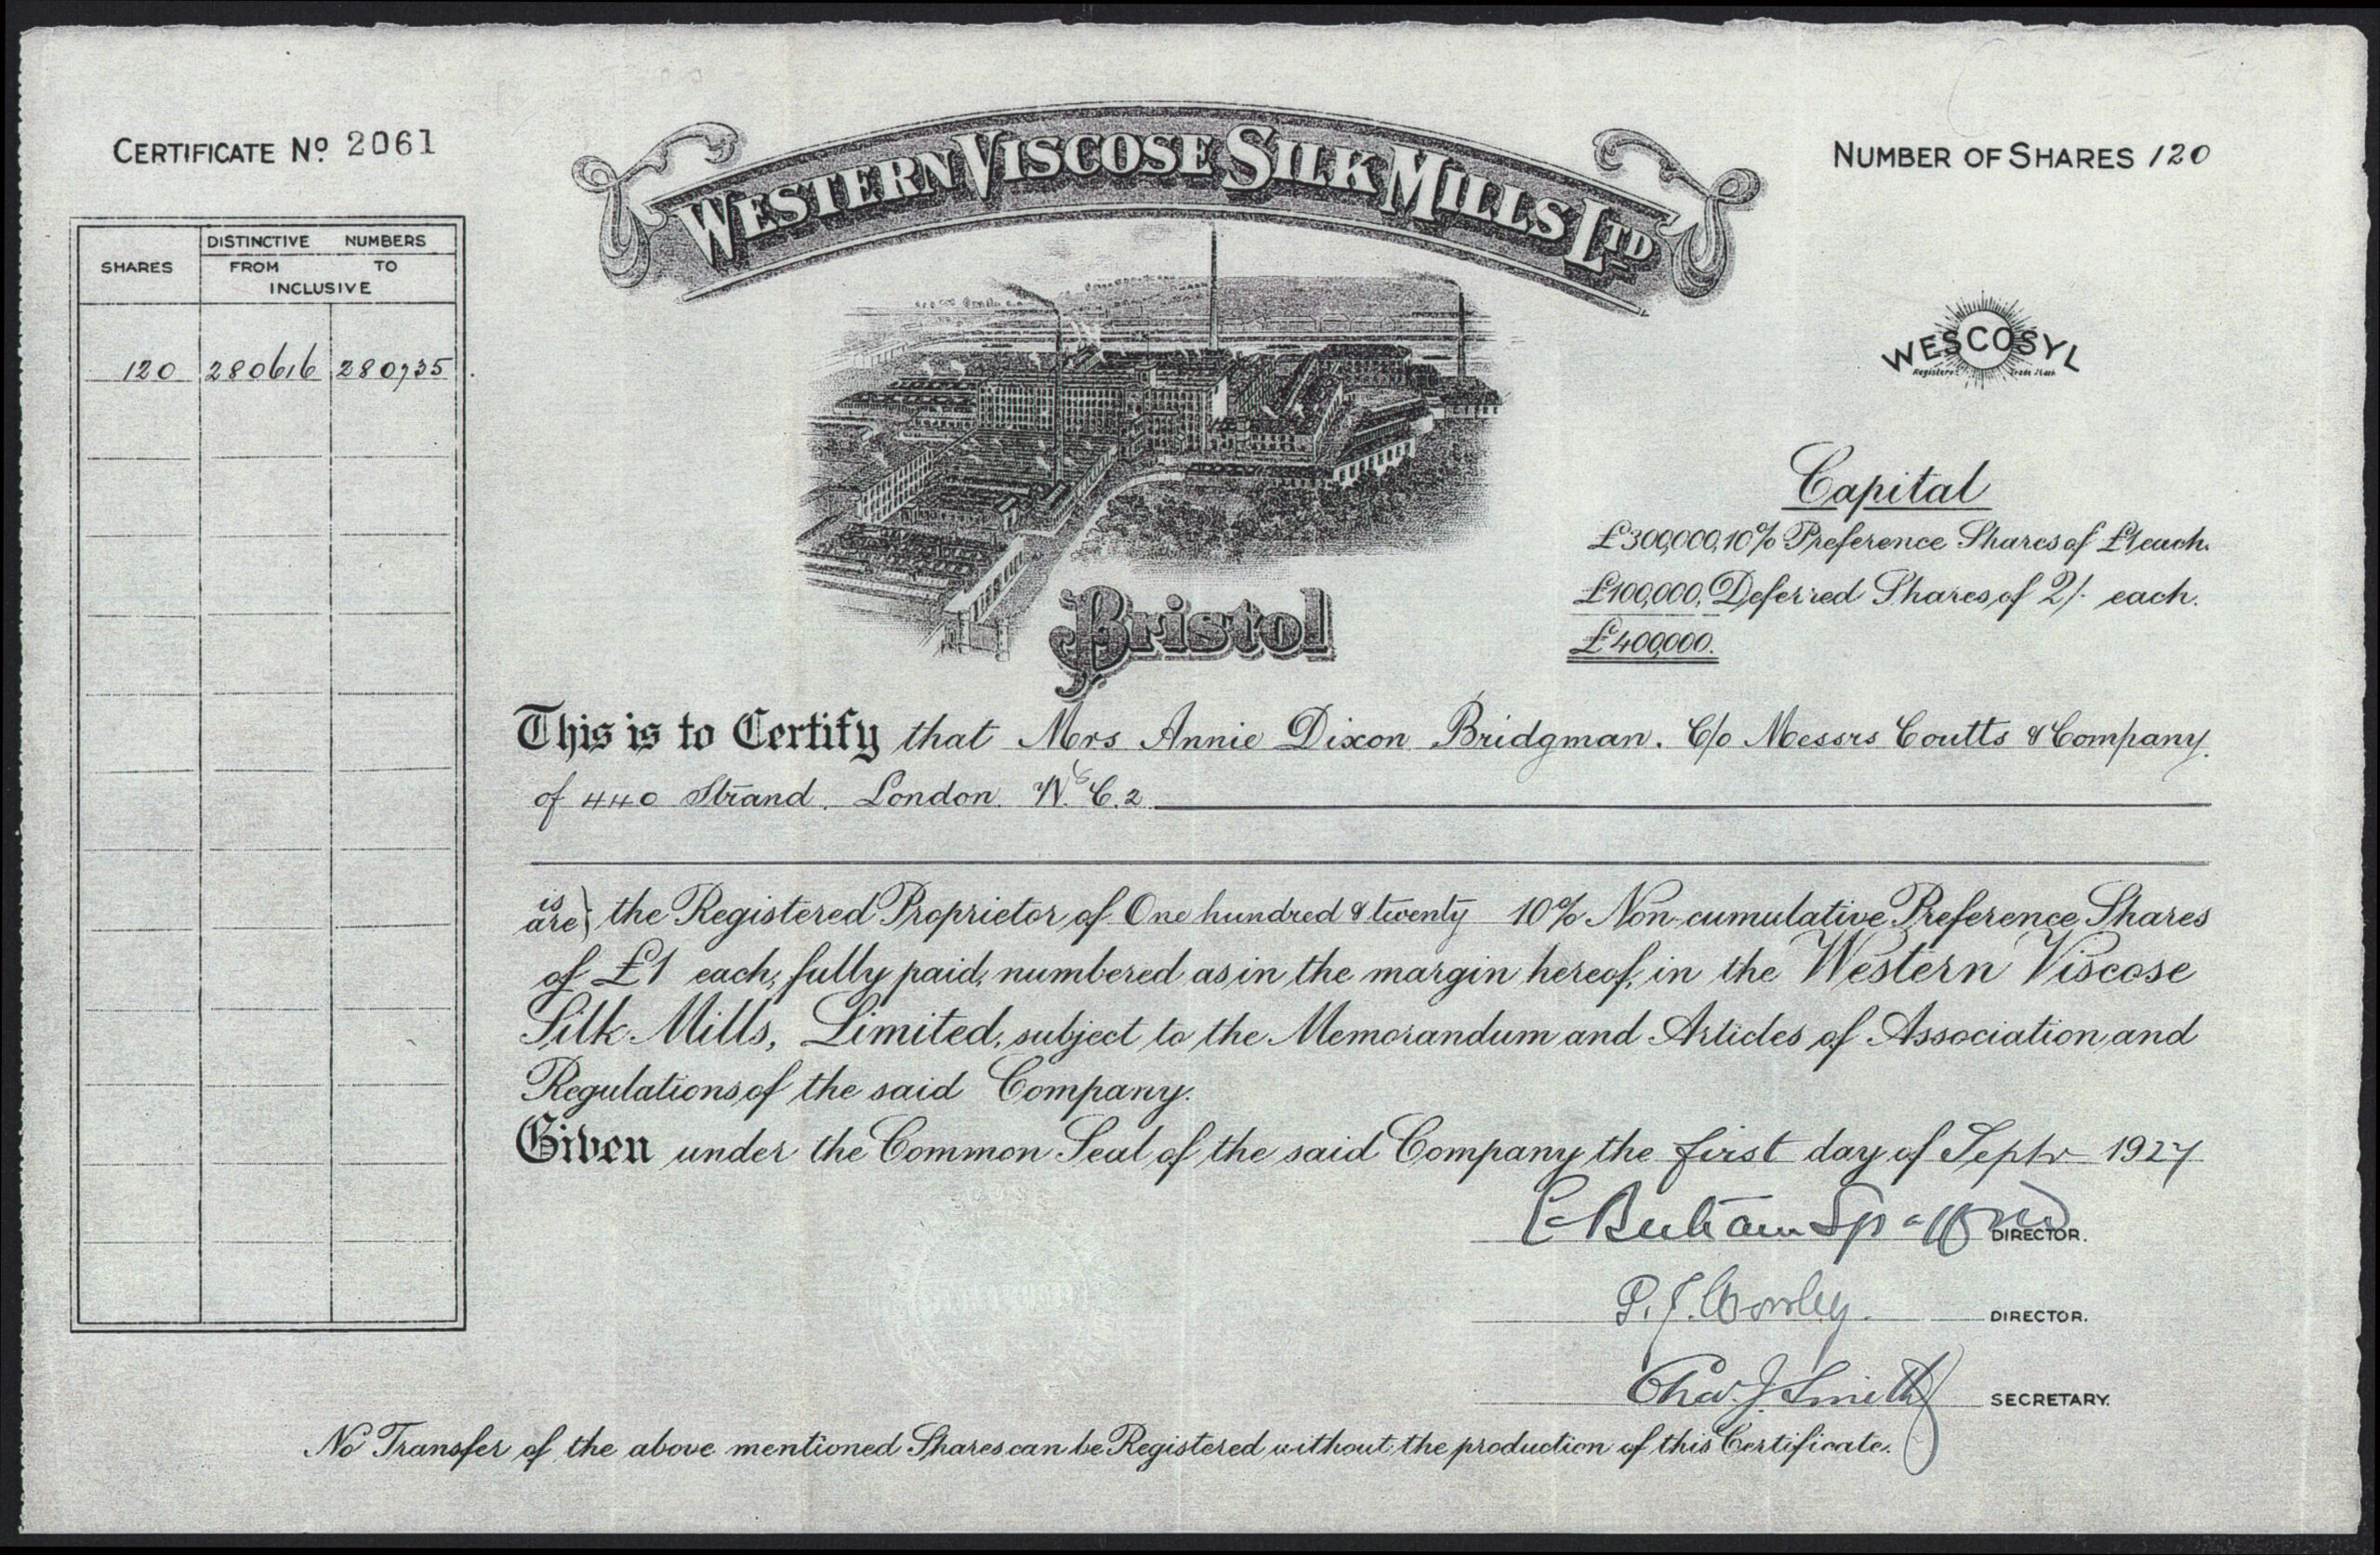 CERTIFICATE Nº 2061
NUMBER OF SHARES 120
WESTERN VISCOSE SILK MILLS LTD
SHARES
DISTINCTIVE NUMBERS
FROM TO
INCLUSIVE
120 280616 280735
WESCOSYL
Registered Trade Mark
Capital
£300,000, 10% Preference Shares of £1 each.
£100,000, Deferred Shares of 2/- each.
£400,000.
Bristol
This is to Certify that Mrs Annie Dixon Bridgman. C/o Messrs Coutts & Company.
of 440 Strand. London. W.C.2
is
are } the Registered Proprietor of One hundred & twenty 10% Non-cumulative Preference Shares
of £1 each, fully paid, numbered as in the margin hereof, in the Western Viscose
Silk Mills, Limited, subject to the Memorandum and Articles of Association and
Regulations of the said Company.
Given under the Common Seal of the said Company the first day of Septr 1927
DIRECTOR.
DIRECTOR.
Chas. J. Smith SECRETARY.
No Transfer of the above mentioned Shares can be Registered without the production of this Certificate.